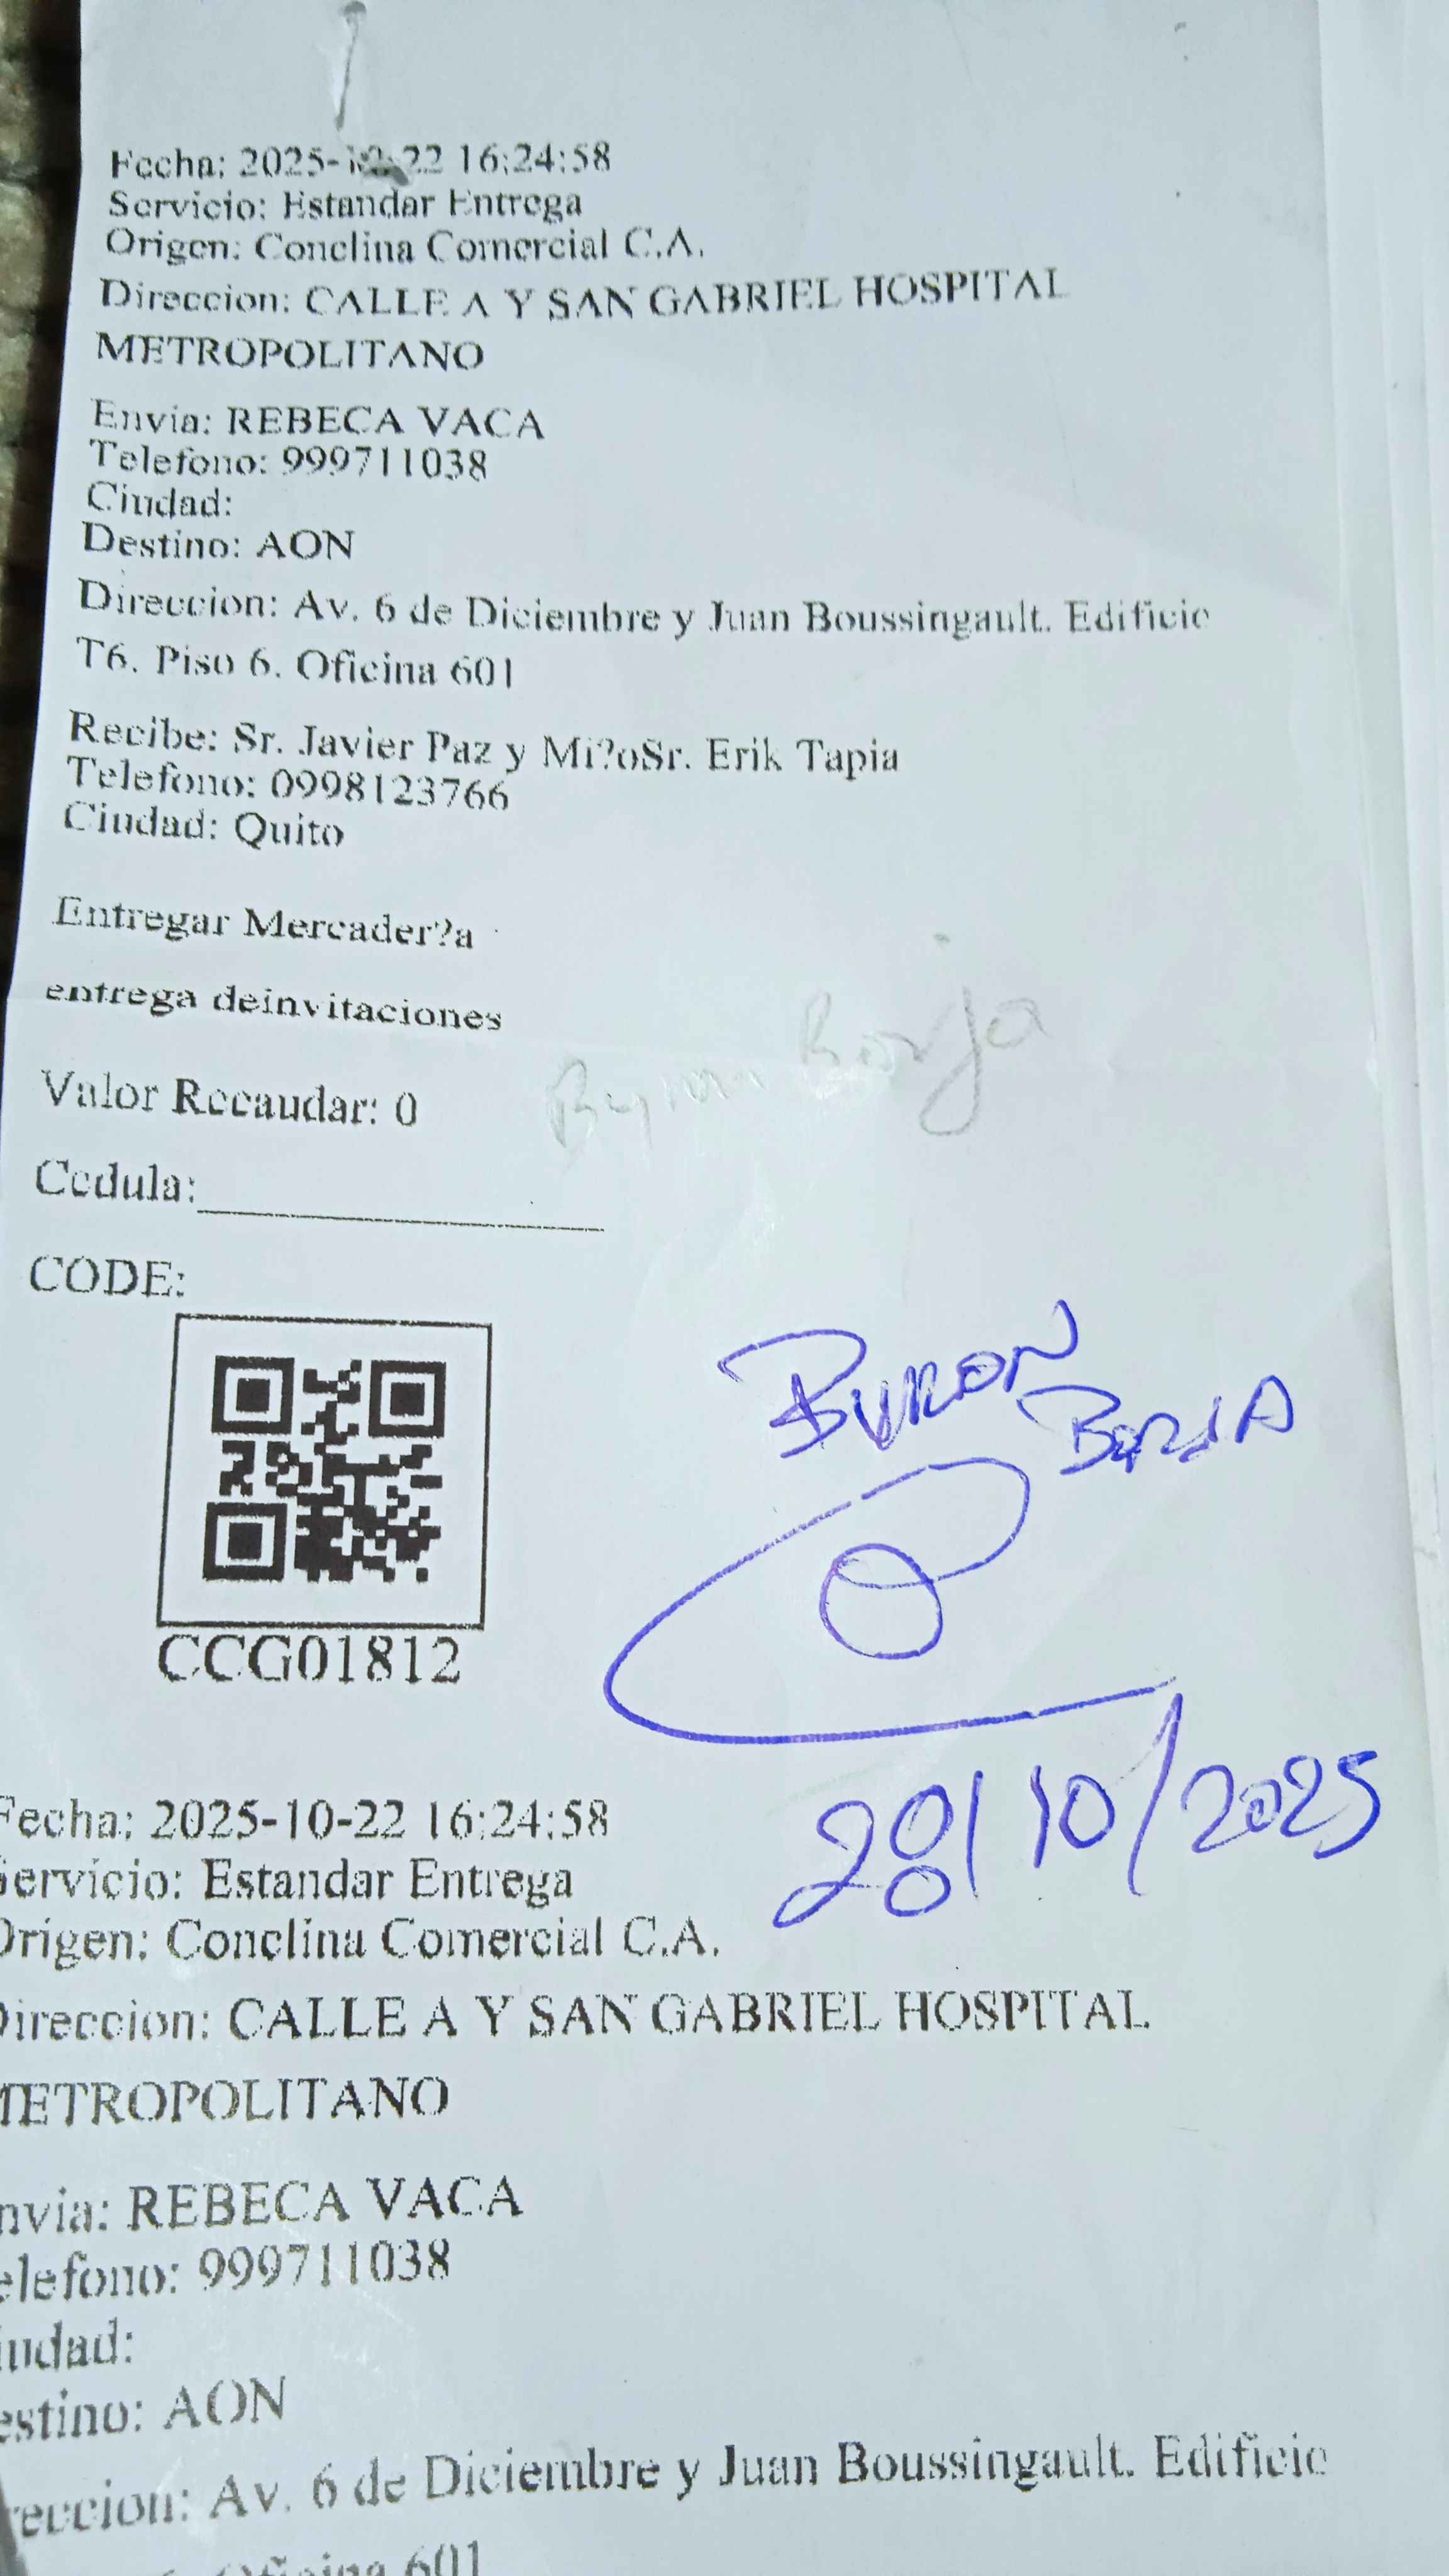 Fecha: 2025-10-22 16:24:58
Servicio: Estandar Entrega
Origen: Conclina Comercial C.A.
Direccion: CALLE A Y SAN GABRIEL HOSPITAL
METROPOLITANO
Envia: REBECA VACA
Telefono: 999711038
Ciudad:
Destino: AON
Direccion: Av. 6 de Diciembre y Juan Boussingault. Edificio
T6. Piso 6. Oficina 601
Recibe: Sr. Javier Paz y Mi?oSr. Erik Tapia
Telefono: 0998123766
Ciudad: Quito
Entregar Mercader?a
entrega deinvitaciones
Byron Borja
Valor Recaudar: 0
Cedula:
CODE:
BYRON
BORJA
CCG01812
28/10/2025
Fecha: 2025-10-22 16:24:58
Servicio: Estandar Entrega
Origen: Conclina Comercial C.A.
Direccion: CALLE A Y SAN GABRIEL HOSPITAL
METROPOLITANO
Envia: REBECA VACA
Telefono: 999711038
Ciudad:
Destino: AON
Direccion: Av. 6 de Diciembre y Juan Boussingault. Edificio
Oficina 601